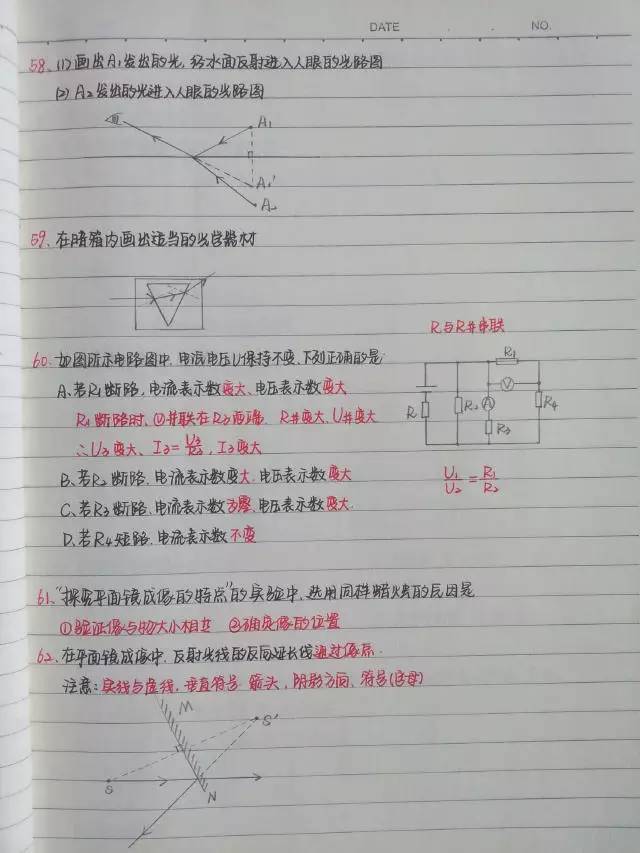 DATE NO.
58. (1) 画出A₁发出的光,经水面反射进入人眼的光路图
(2) A₂发出的光进入人眼的光路图
A₁
A₁'
A₂
59. 在暗箱内画出适当的光学器材
R与R并串联
60. 如图所示电路图中,电源电压U保持不变,下列正确的是:
A. 若R₁断路,电流表示数变大、电压表示数变大
R₁断路时,Ⓥ并联在R₃两端,R并变大,U并变大
∴U₃变大、I₃=U₃/R₃,I₃变大
B. 若R₂断路,电流表示数变大,电压表示数变大
C. 若R₃断路,电流表示数为零,电压表示数变大.
D. 若R₄短路,电流表示数不变
R₁
V
R
R₂
A
R₄
R₃
U₁/U₂=R₁/R₂
61. “探究平面镜成像的特点”的实验中,选用同样蜡烛的原因是
①验证像与物大小相等 ②确定像的位置
62. 在平面镜成像中,反射光线的反向延长线通过像点.
注意:实线与虚线,垂直符号,箭头,阴影方向,符号(字母)
M
S'
S
N